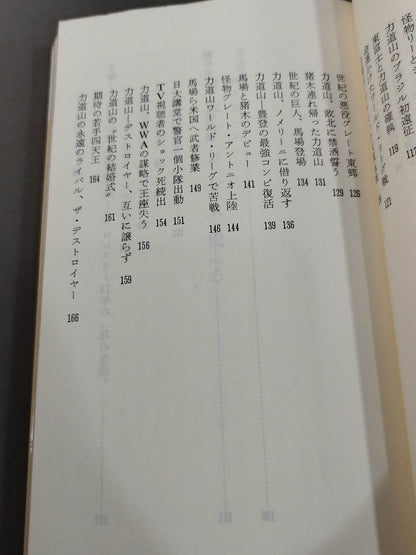 力道山のブラジル初遠征
東富士と力道山の確執 119
世紀の悪役グレート東郷 126
力道山、敗北に禁酒誓う 129
猪木連れ帰った力道山 131
世紀の巨人、馬場登場 134
力道山、ノメリーニに借り返す 136
力道山―豊登の最強コンビ復活 139
馬場と猪木のデビュー 141
怪物グレート・アントニオ上陸 144
力道山ワールド・リーグで苦戦 146
馬場ら米国へ武者修業 149
日大講堂で警官一個小隊出動 151
TV視聴者のショック死続出 154
力道山、WWAの謀略で王座失う 156
力道山―デストロイヤー、互いに譲らず 159
力道山の〝世紀の結婚式〟 161
期待の若手四天王 164
力道山の永遠のライバル、ザ・デストロイヤー 166